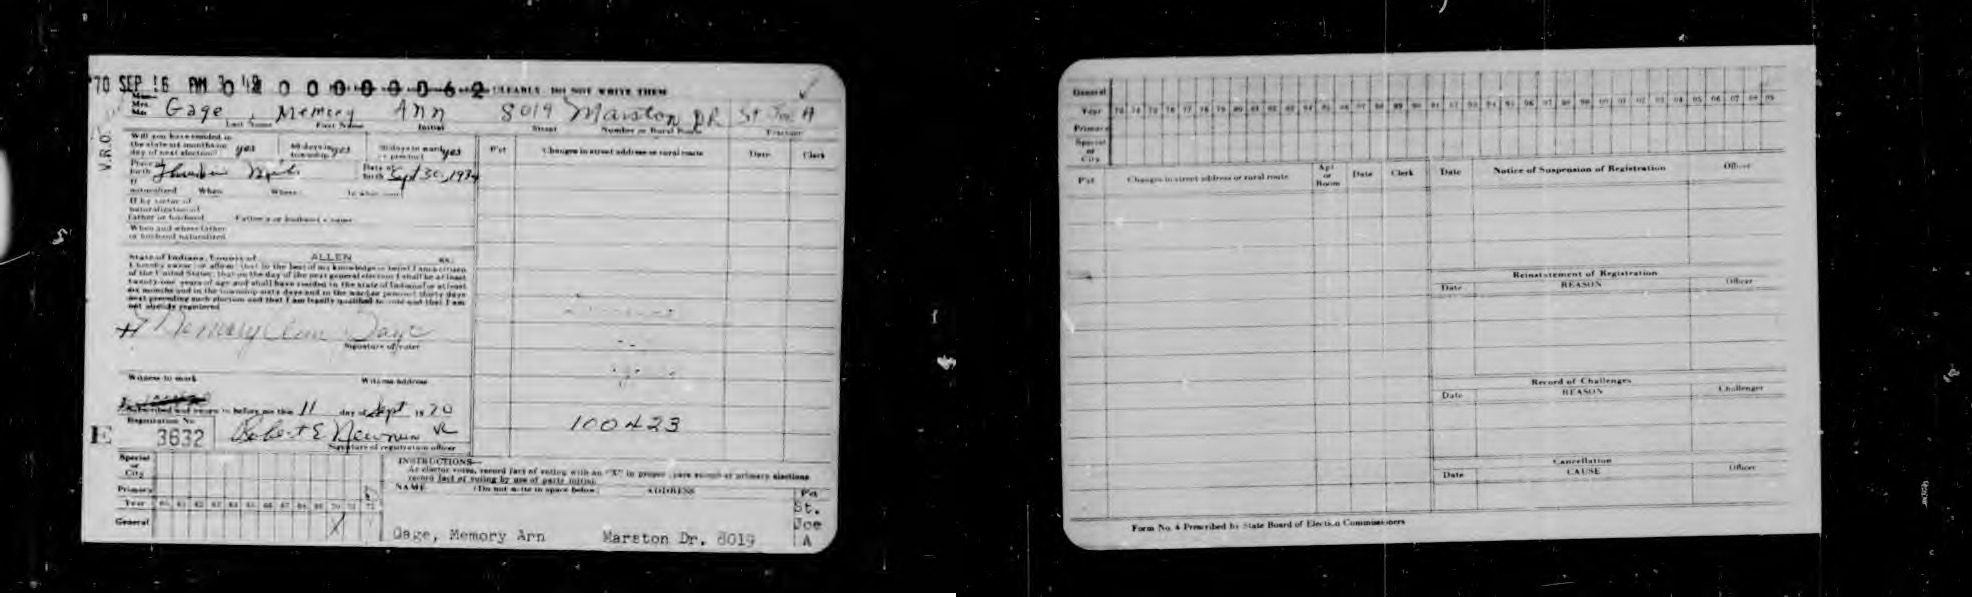 '70 SEP 16 PM 3 CLEARLY. DO NOT WRITE THEM
Mrs.
Gage, Memory Ann 8019 Marston DR St Joe A
Last Name First Name Initial Street Number or Rural Route Precinct
V.R.O.
Will you have resided in
the state six months on
day of next election? yes
60 days in
township? yes
30 days in ward
or precinct yes
Place of
birth
Date of
birth Sept 30, 19
If
naturalized When Where In what court
If by virtue of
naturalization of
father or husband Father's or husband's name
When and where father
or husband naturalized
State of Indiana, County of ALLEN ss.:
I hereby swear (or affirm) that to the best of my knowledge or belief I am a citizen
of the United States; that on the day of the next general election I shall be at least
twenty-one years of age and shall have resided in the state of Indiana for at least
six months and in the township sixty days and in the ward or precinct thirty days
next preceding such election and that I am legally qualified to vote and that I am
not already registered
Memory Ann Gage
Signature of voter
Witness to mark Witness address
Subscribed and sworn to before me this 11 day of Sept 19 70
Registration No.
E 3632 Robert E Newman
Signature of registration officer
Pct Changes in street address or rural route Date Clerk
100423
Special
or
City
Primary
Year 60 61 62 63 64 65 66 67 68 69 70 71 72
General X
INSTRUCTIONS—
As elector votes, record fact of voting with an "X" in proper space except at primary elections
record fact of voting by use of party initial.
NAME (Do not write in space below) ADDRESS Pct
Gage, Memory Ann Marston Dr. 8019
St.
Joe
A
General
Year
Primary
Special
or
City
Pct Changes in street address or rural route Apt or Room Date Clerk
Date Notice of Suspension of Registration Officer
Reinstatement of Registration
Date REASON Officer
Record of Challenges
Date REASON Challenger
Cancellation
Date CAUSE Officer
Form No. 4 Prescribed by State Board of Election Commissioners